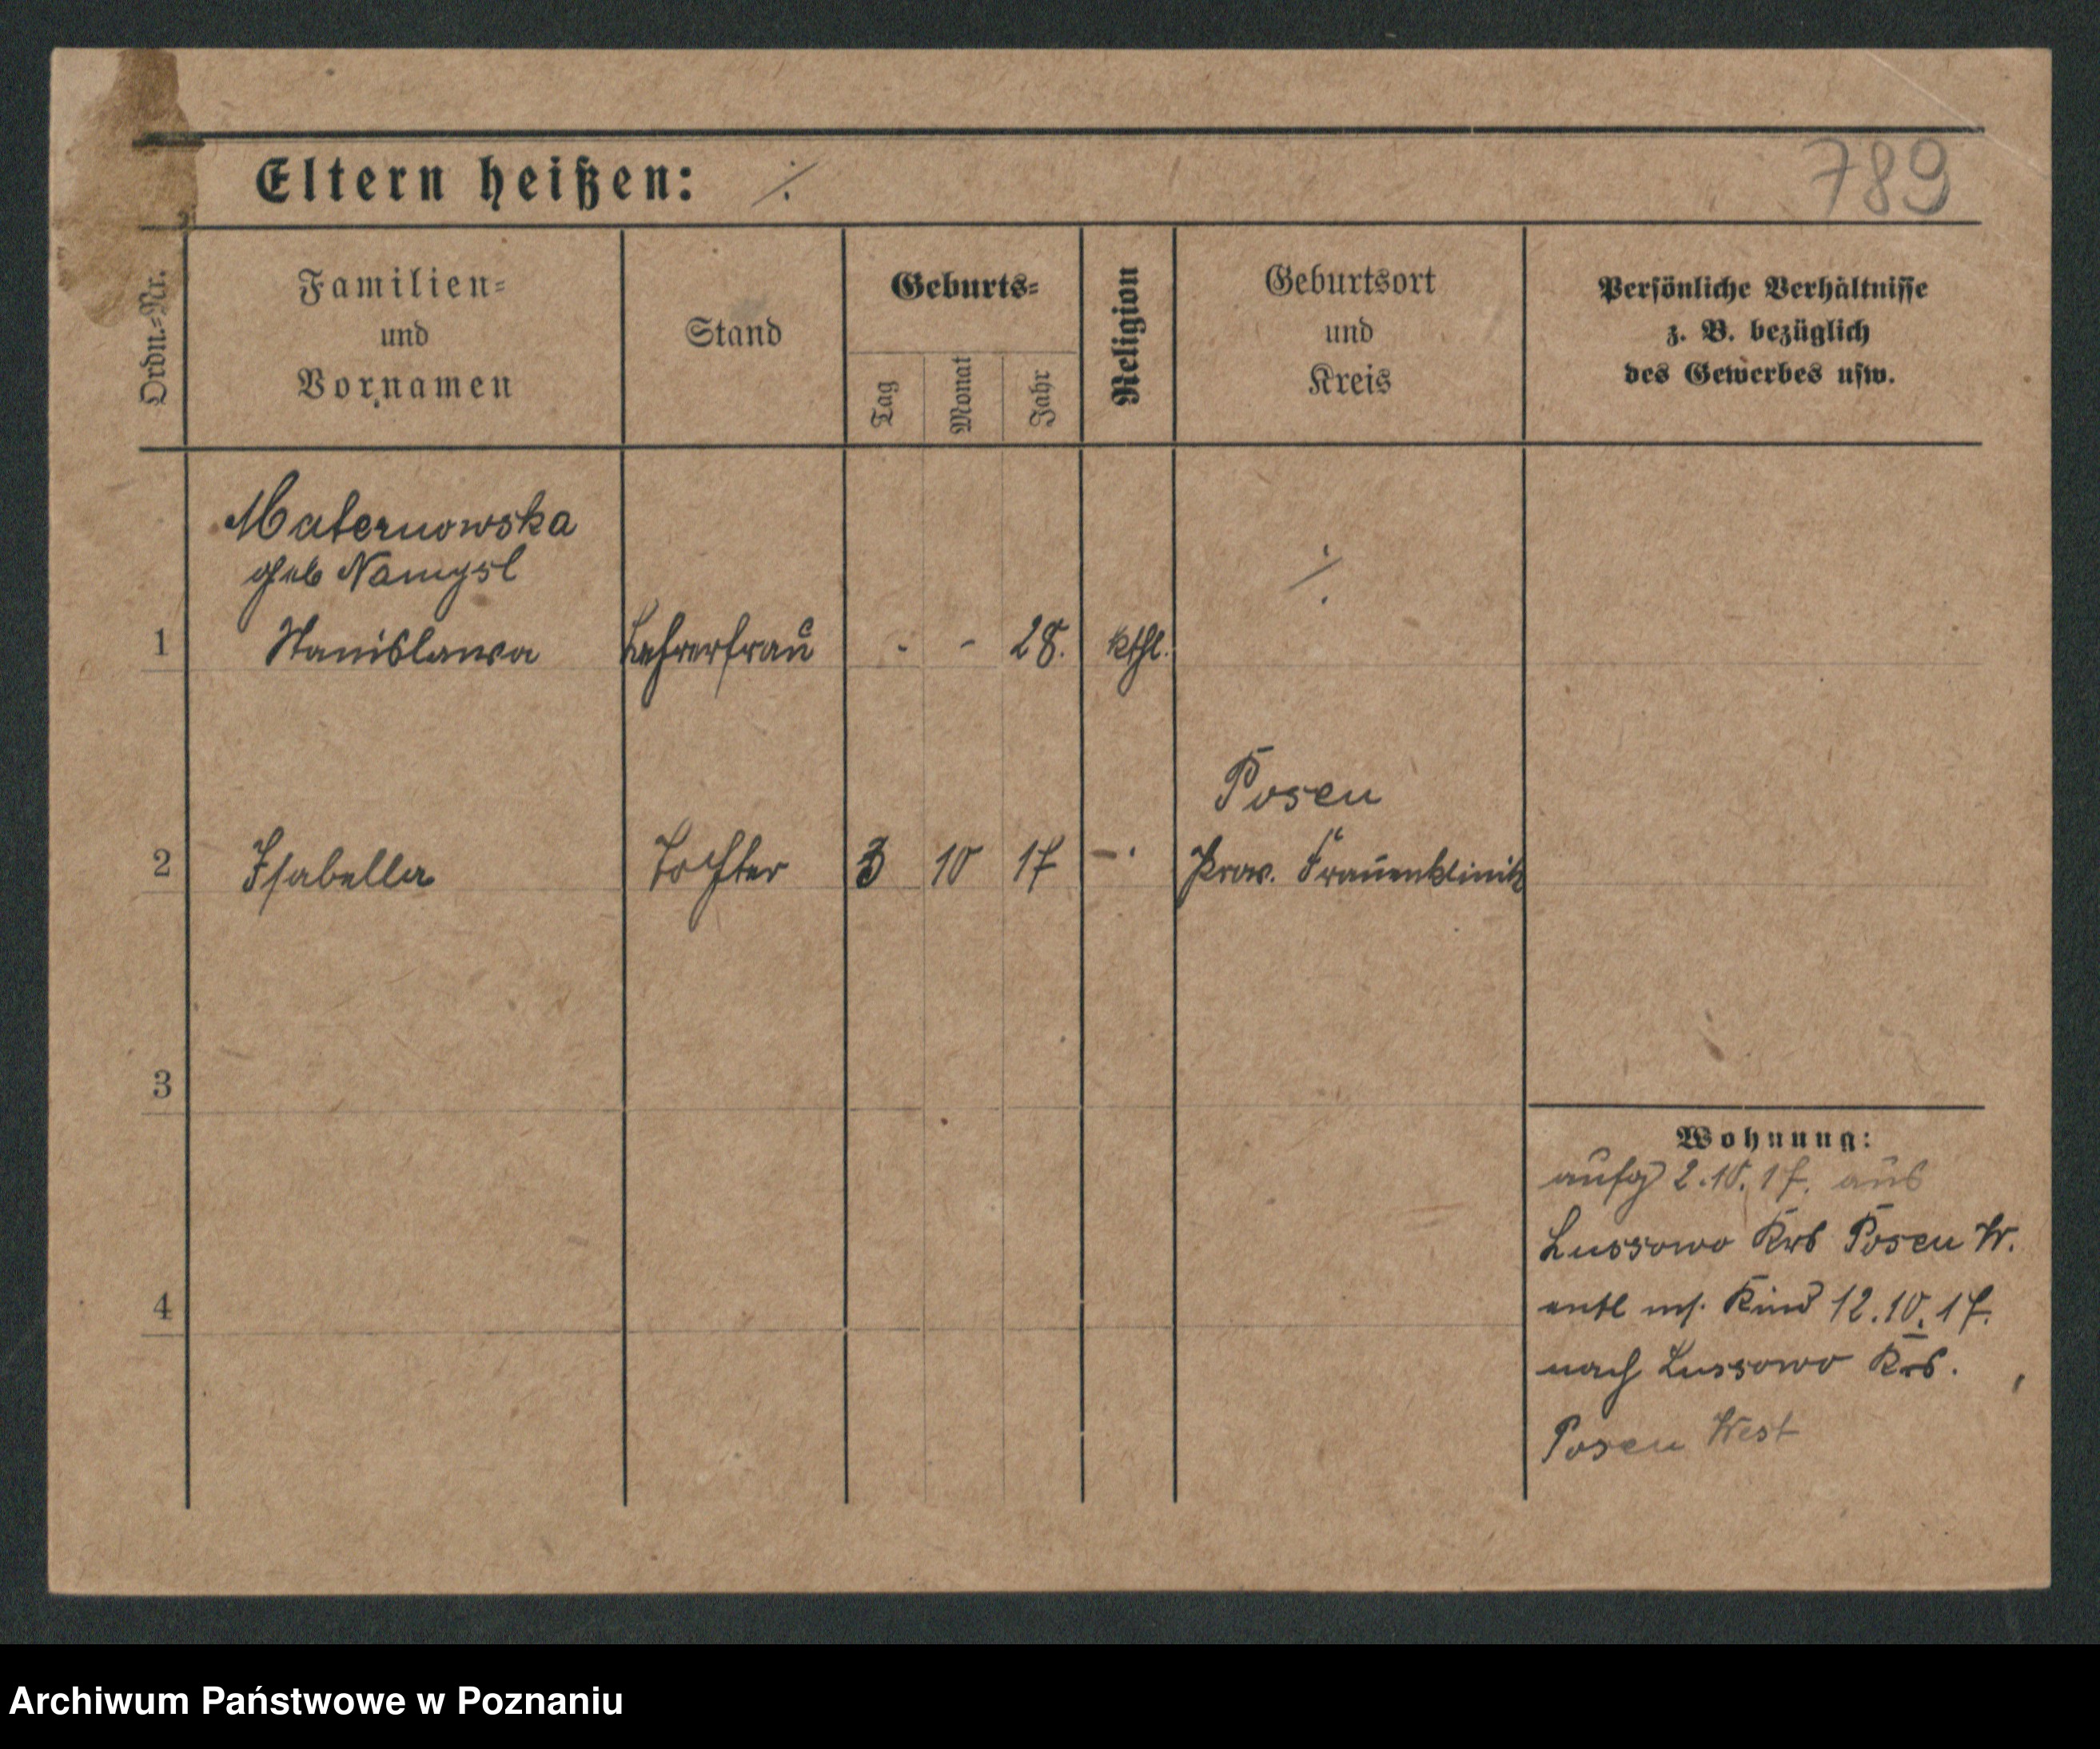 Eltern heißen: ⁒
789
Ordn.=Nr.
Familien=
und
Vornamen
Stand
Geburts=
Tag
Monat
Jahr
Religion
Geburtsort
und
Kreis
Persönliche Verhältnisse
z. B. bezüglich
des Gewerbes usw.
Maternowska
geb Namysl
1 Stanislawa Lehrerfrau - - 28. kthl. ⁒
Posen
2 Isabella Tochter 3 10 17 -. Prov. Frauenklinik
3
4
Wohnung:
aufg 2.10.17. aus
Lussowo Krs Posen W.
entl m. Kind 12.10.17.
nach Lussowo Krs.
Posen West
Archiwum Państwowe w Poznaniu